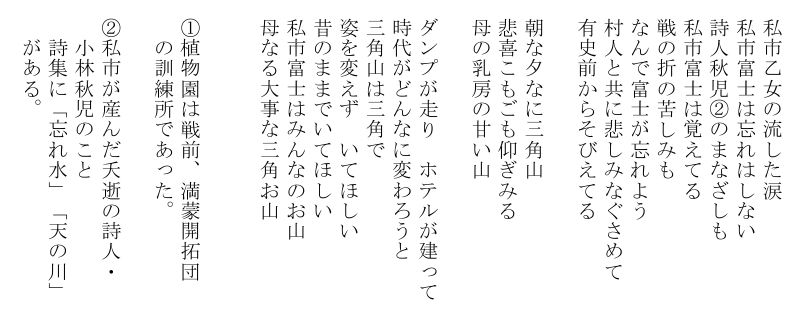 私市乙女の流した涙
私市富士は忘れはしない
詩人秋児②のまなざしも
私市富士は覚えてる
戦の折の苦しみも
なんで富士が忘れよう
村人と共に悲しみなぐさめて
有史前からそびえてる
朝な夕なに三角山
悲喜こもごも仰ぎみる
母の乳房の甘い山
ダンプが走り　ホテルが建って
時代がどんなに変わろうと
三角山は三角で
姿を変えず　いてほしい
昔のままでいてほしい
私市富士はみんなのお山
母なる大事な三角お山
①植物園は戦前、満蒙開拓団
の訓練所であった。
②私市が産んだ夭逝の詩人・
小林秋児のこと
詩集に「忘れ水」「天の川」
がある。